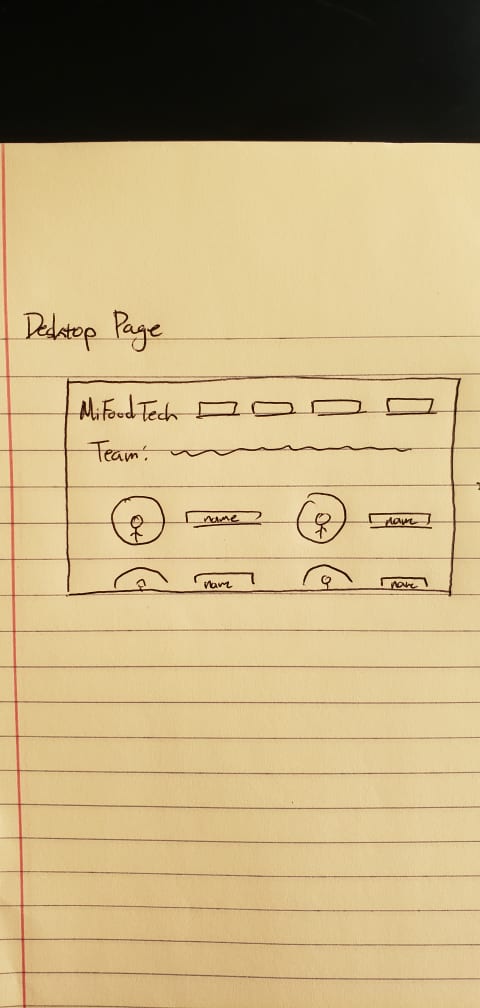 Desktop Page
MiFoodTech
Team:
name name
name name